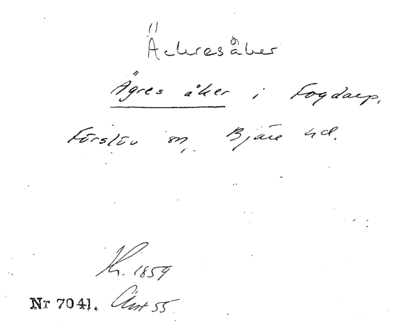 Äckresåker
Ägres åker i Fogdarp,
Förslöv sn, Bjäre hd.
Kr. 1859
Nr 7041. Ant 55.